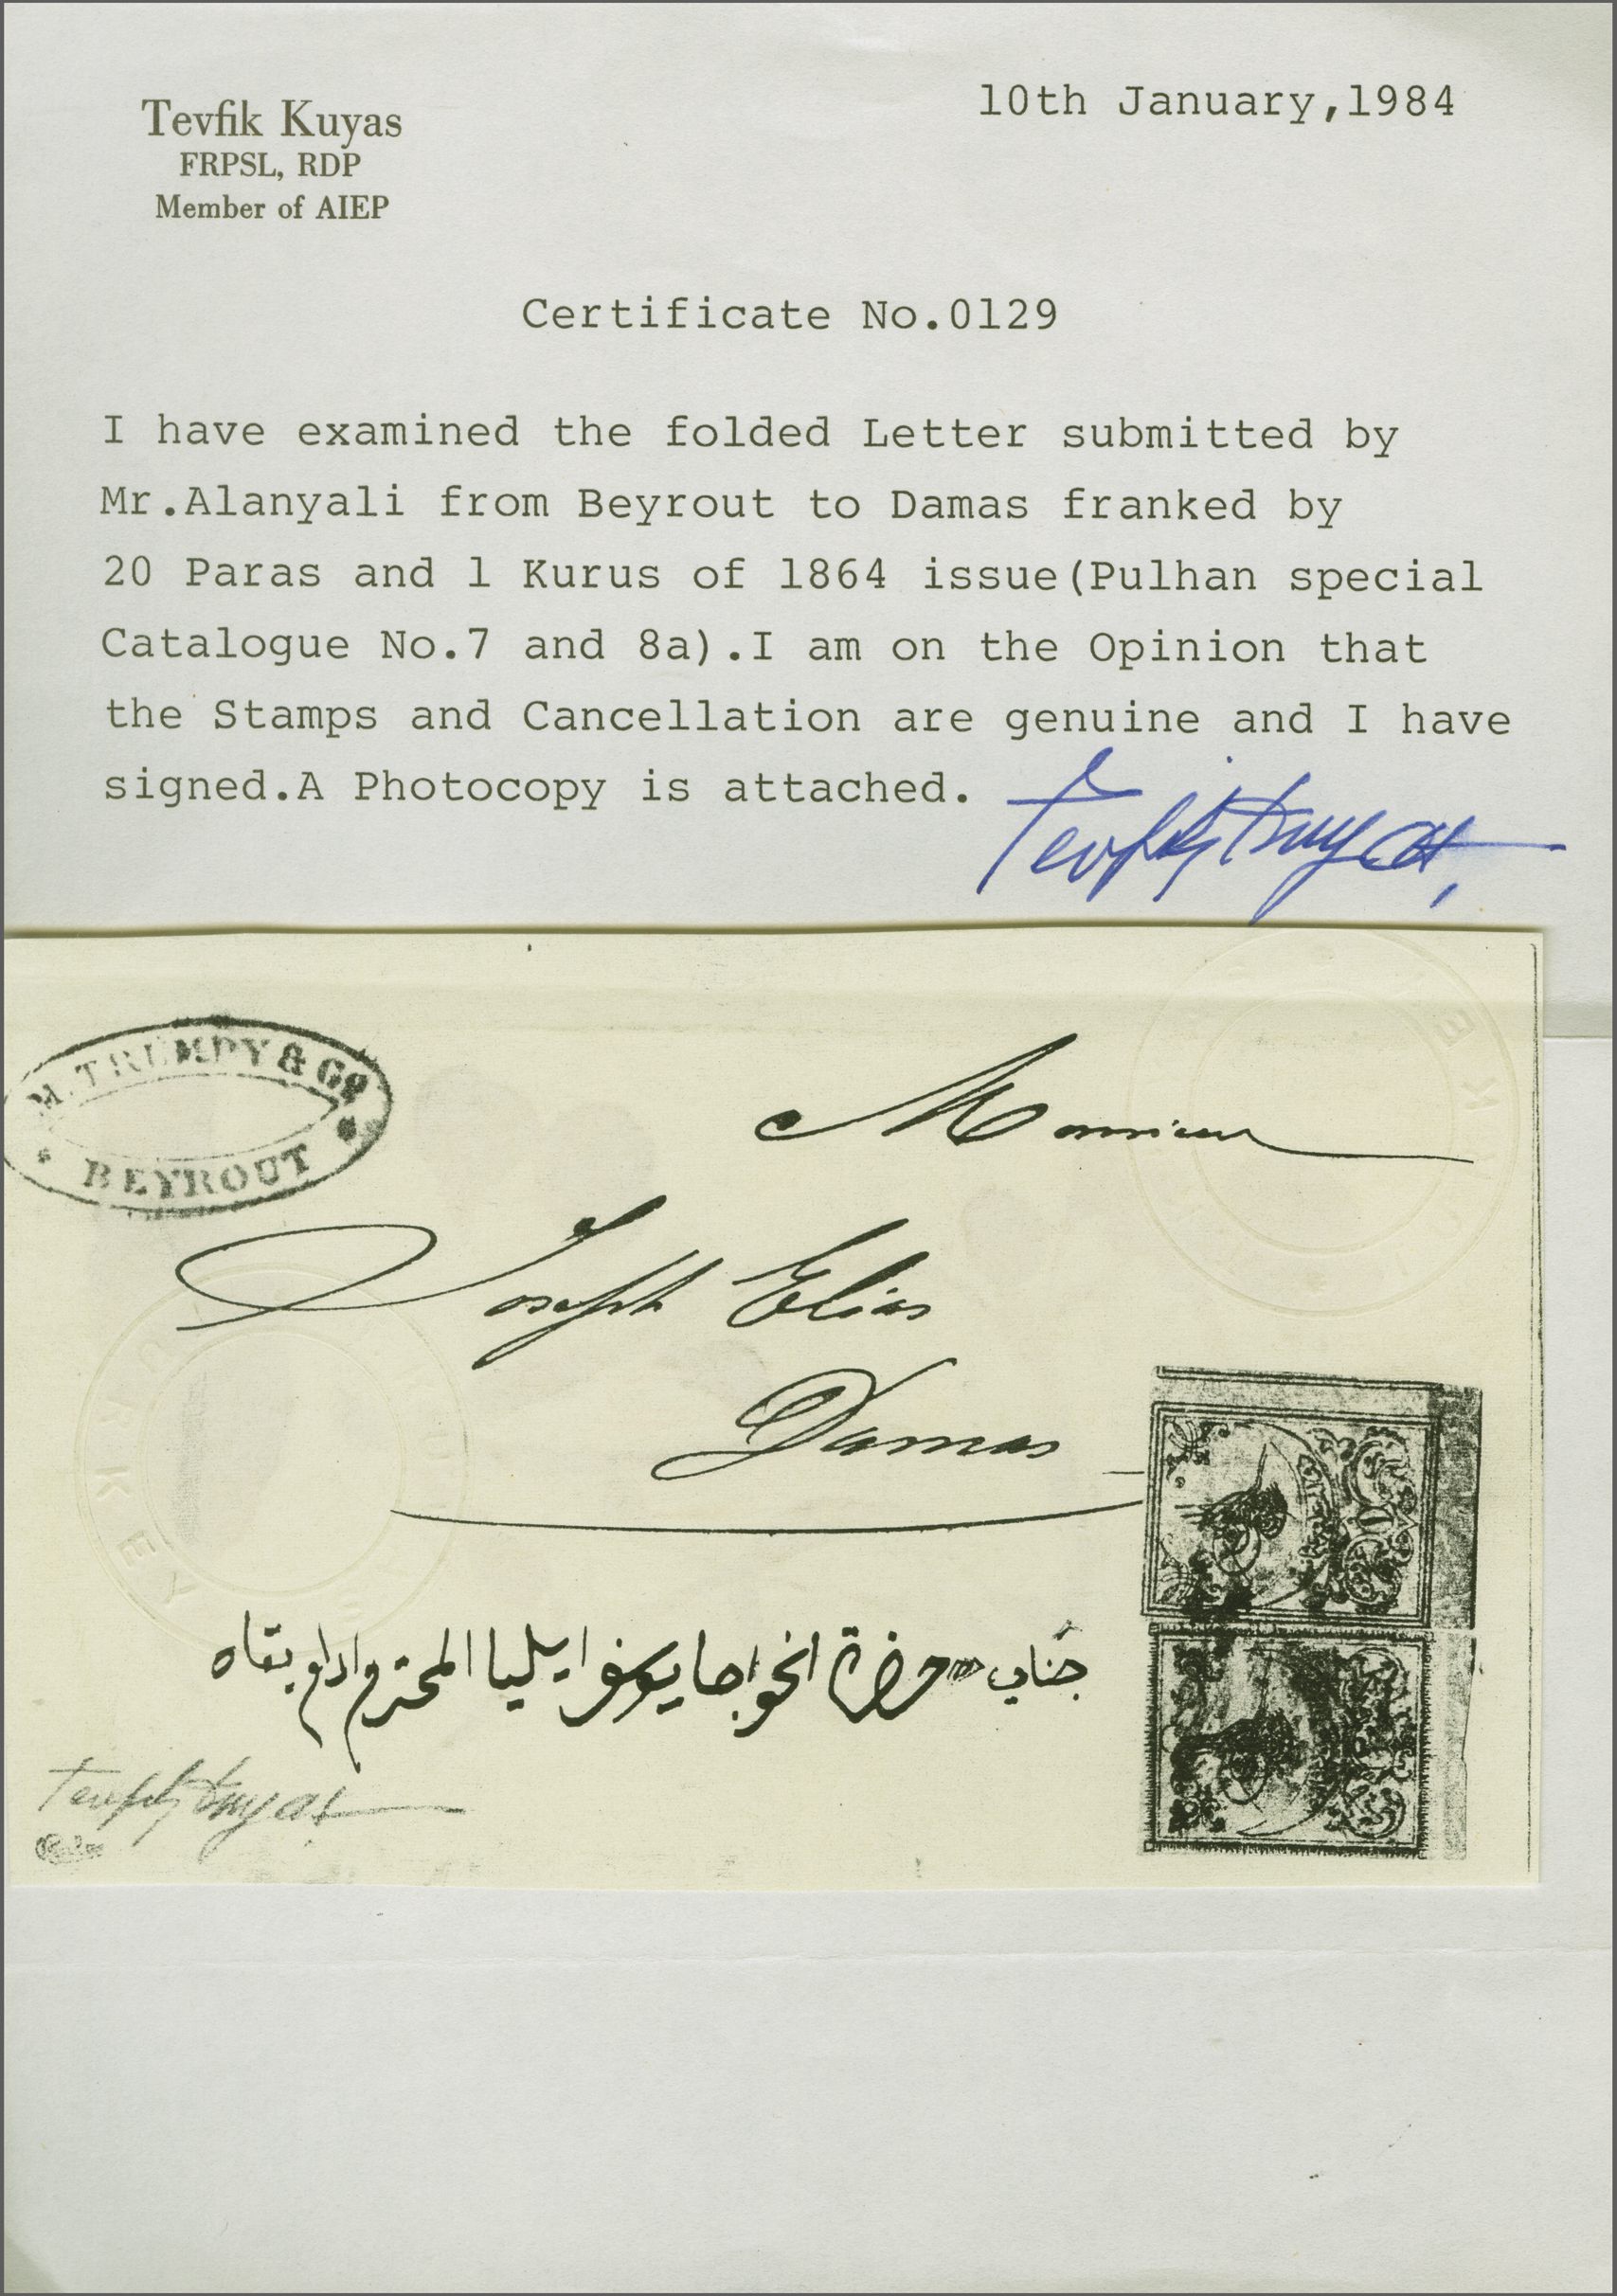 Tevfik Kuyas
FRPSL, RDP
Member of AIEP
10th January,1984
Certificate No.0129
I have examined the folded Letter submitted by
Mr.Alanyali from Beyrout to Damas franked by
20 Paras and 1 Kurus of 1864 issue(Pulhan special
Catalogue No.7 and 8a).I am on the Opinion that
the Stamps and Cancellation are genuine and I have
signed.A Photocopy is attached.
Tevfik Kuyas
M. TRUMPY & Co
BEYROUT
Monsieur
Joseph Elias
Damas
جناب حضرة الخواجا يوسف ايليا المحترم ادام بقاه
Tevfik Kuyas